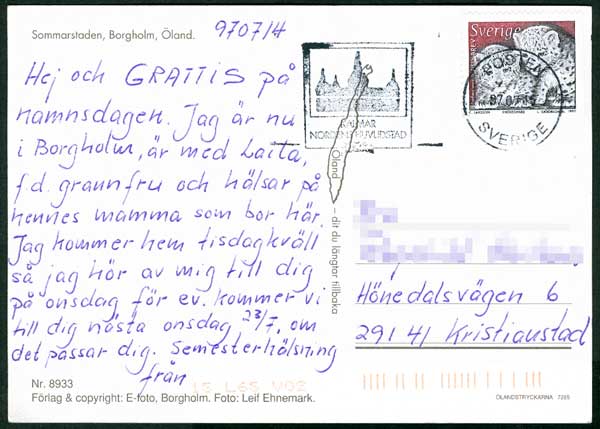 Sommarstaden, Borgholm, Öland.
970714
Hej och GRATTIS på
namnsdagen. Jag är nu
i Borgholm, är med Laila,
f.d. grannfru och hälsar på
hennes mamma som bor här.
Jag kommer hem tisdagkväll
så jag hör av mig till dig
på onsdag för ev. kommer vi
till dig nästa onsdag 23/7, om
det passar dig. Semesterhälsning
från
Nr. 8933
Förlag & copyright: E-foto, Borgholm. Foto: Leif Ehnemark.
KALMAR
NORDENS HUVUDSTAD
Öland – dit du längtar tillbaka
Sverige
BREV
POSTEN
SVERIGE
Hönedalsvägen 6
291 41 Kristianstad
ÖLANDSTRYCKARNA